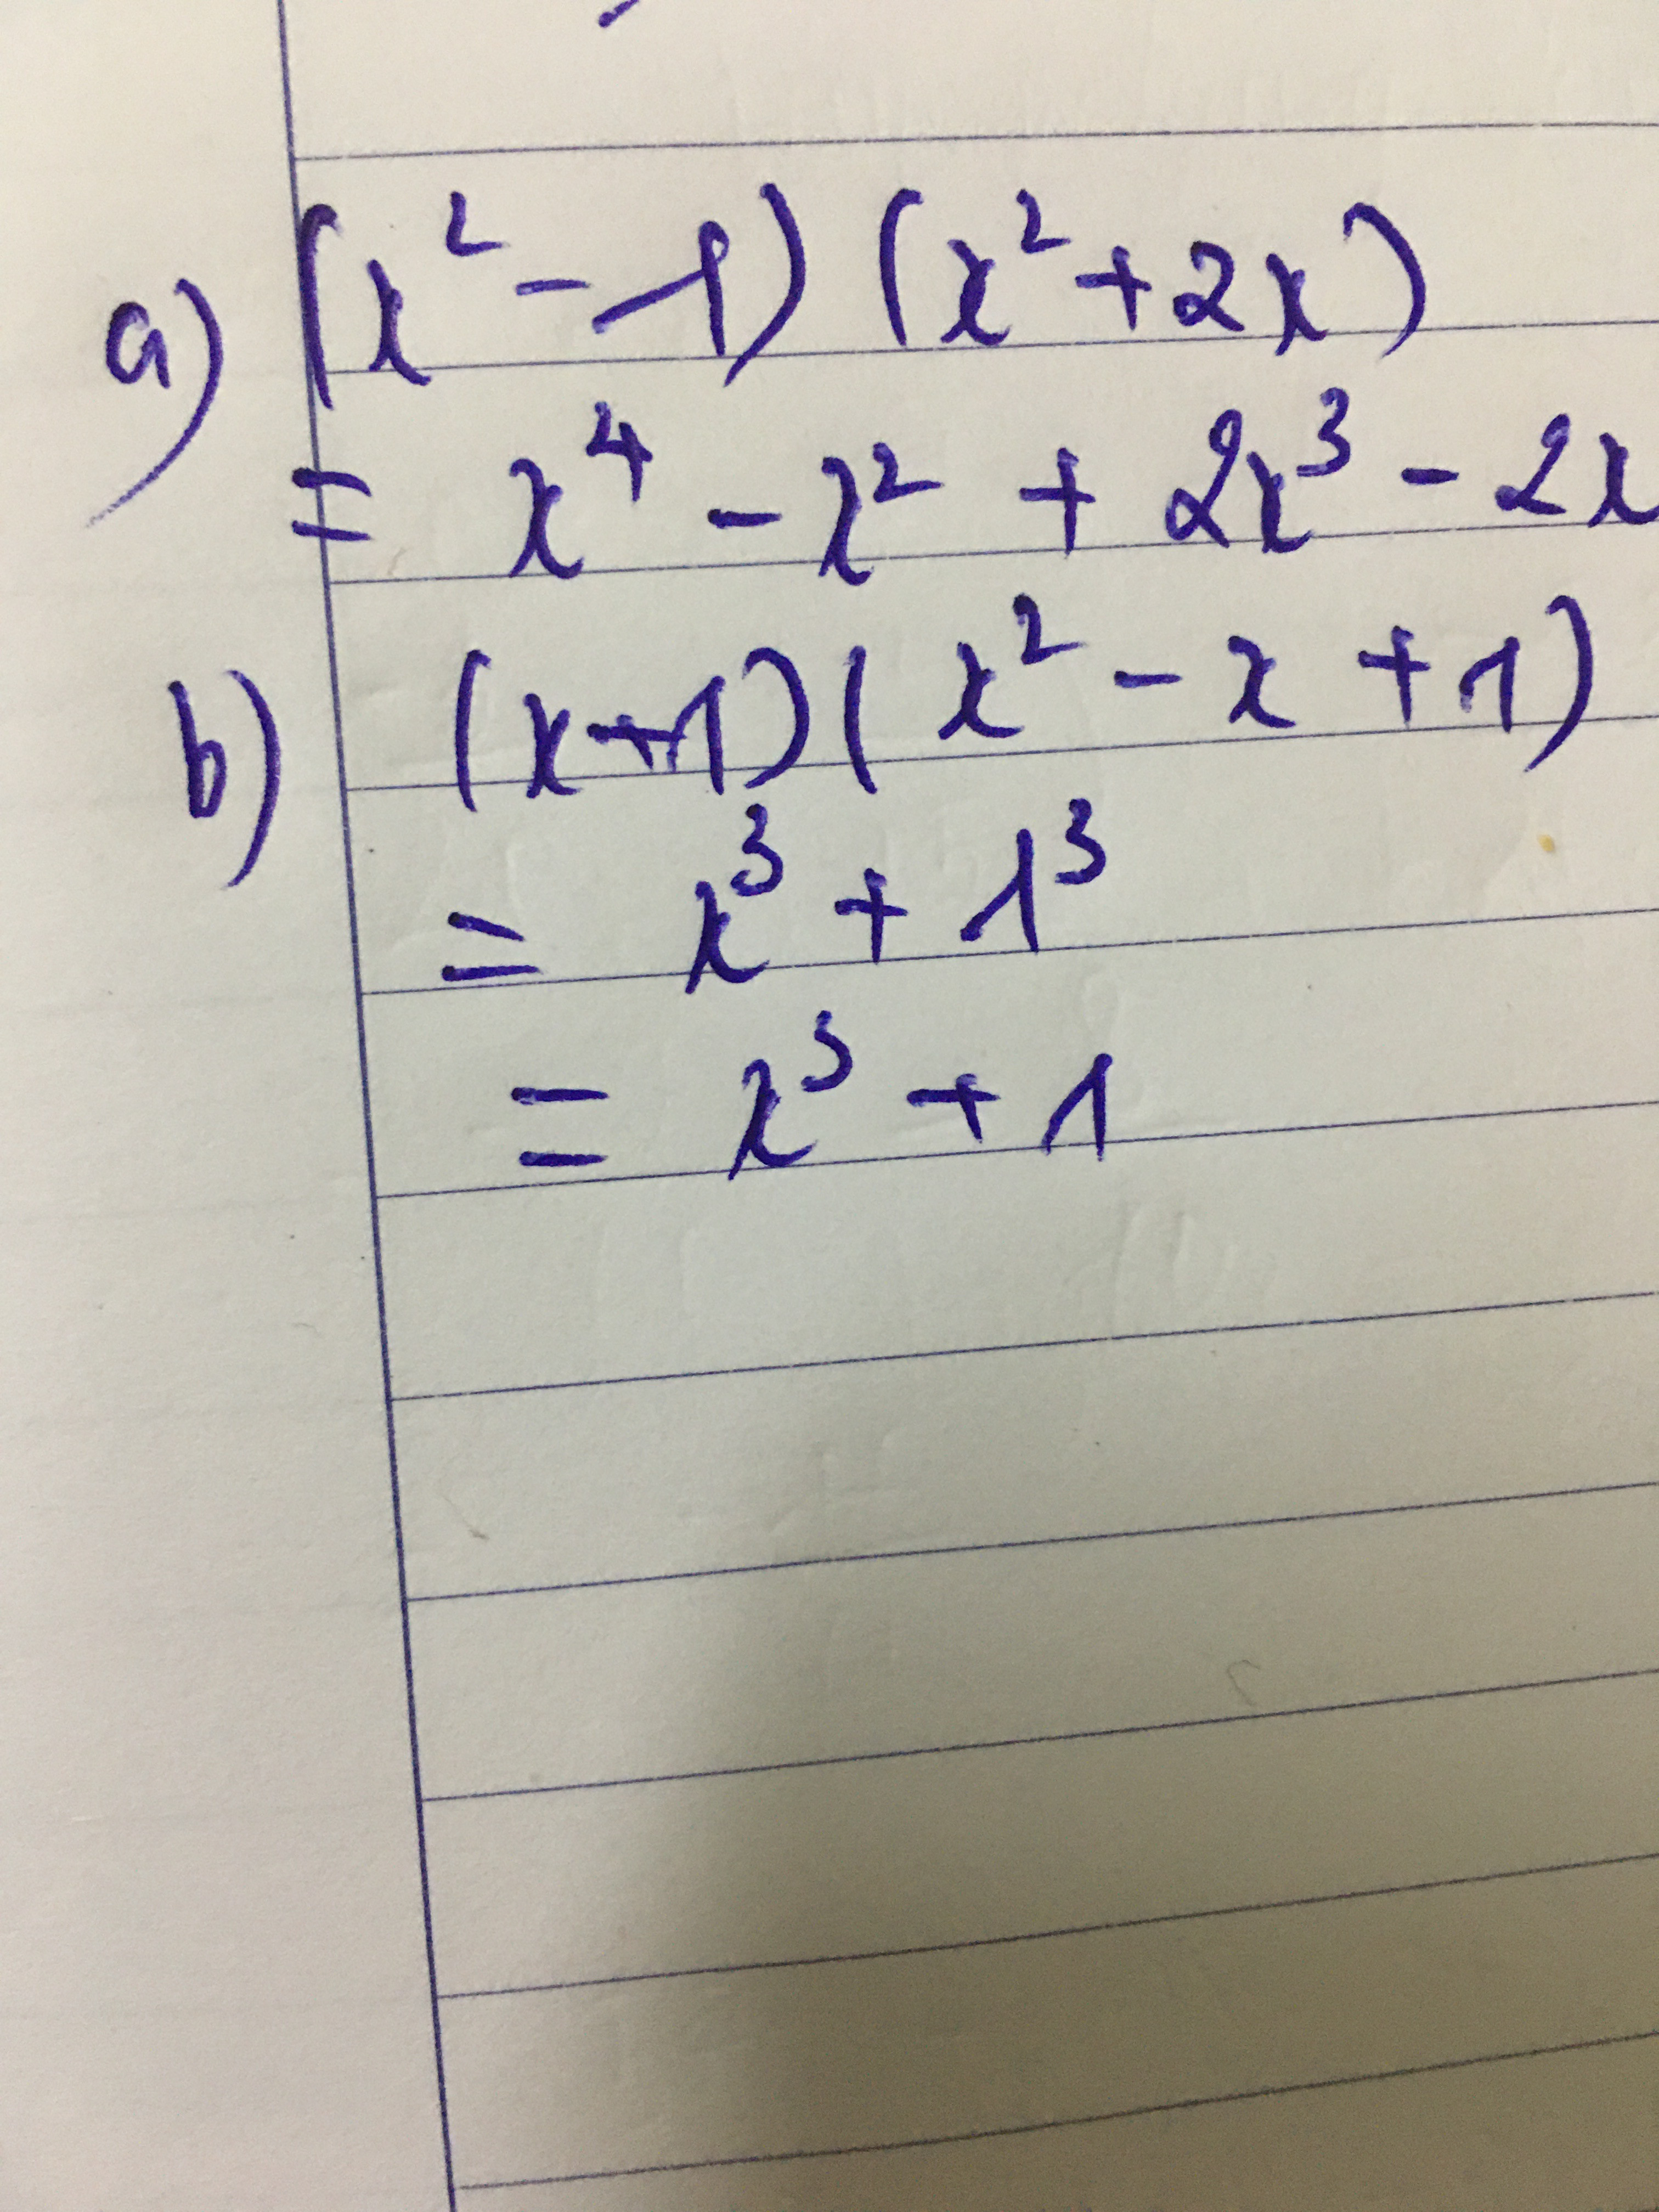 a) (x² - 1) (x² + 2x)
= x⁴ - x² + 2x³ - 2x
b) (x+1)(x² - x + 1)
= x³ + 1³
= x³ + 1